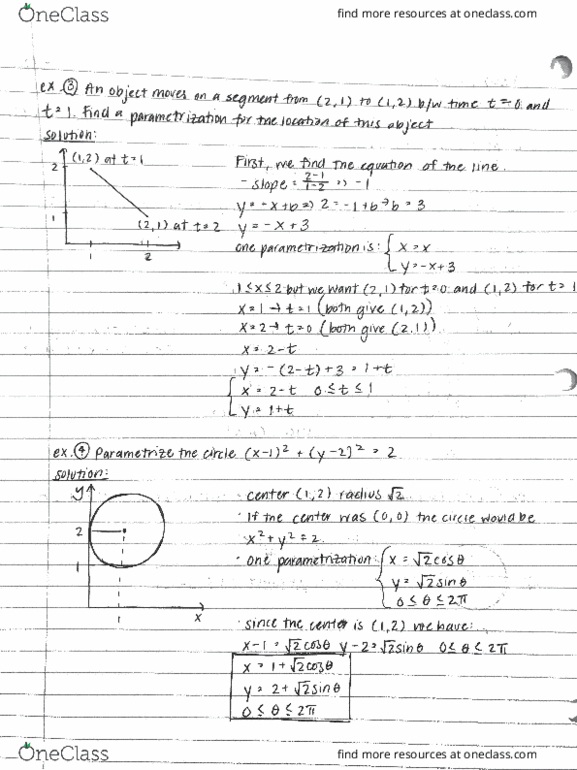 OneClass
find more resources at oneclass.com
ex. ③ An object moves on a segment from (2,1) to (1,2) b/w time t=0 and
t=1. Find a parametrization for the location of this object
solution:
(1,2) at t=1
2
(2,1) at t=2
1
1
2
First, we find the equation of the line.
- slope = 2-1/1-2 => -1
y = -x+b => 2 = -1+b → b = 3
y = -x+3
one parametrization is: { x = x
y = -x+3
1 ≤ x ≤ 2 but we want (2,1) for t=0 and (1,2) for t=1
x=1 → t=1 (both give (1,2))
x=2 → t=0 (both give (2,1))
x = 2-t
y = -(2-t)+3 = 1+t
{ x = 2-t 0 ≤ t ≤ 1
y = 1+t
ex. ④ Parametrize the circle (x-1)² + (y-2)² = 2
solution:
y
2
1
1
x
· center (1,2) radius √2
· If the center was (0,0) the circle would be
x²+y² = 2
· one parametrization: { x = √2cosθ
y = √2sinθ
0 ≤ θ ≤ 2π
· since the center is (1,2) we have:
x-1 = √2cosθ y-2 = √2sinθ 0 ≤ θ ≤ 2π
x = 1+√2cosθ
y = 2+√2sinθ
0 ≤ θ ≤ 2π
OneClass
find more resources at oneclass.com